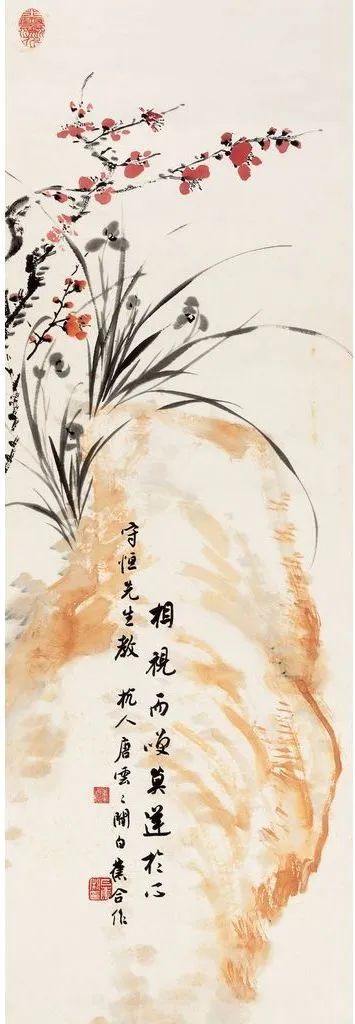 相視而咲莫逆於心
守恒先生教 杭人唐雲〻間白蕉合作